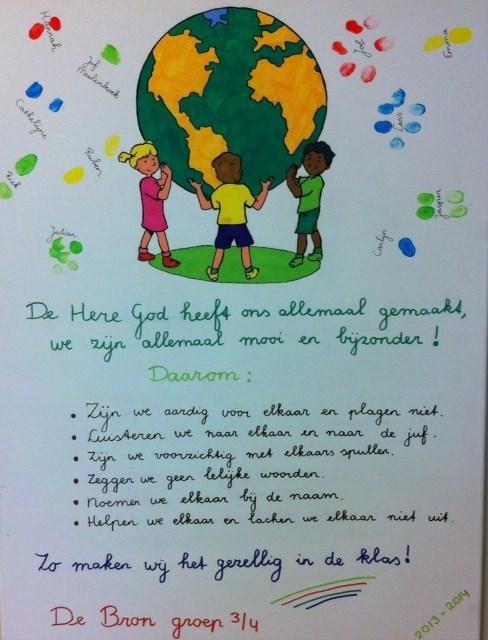 Hannah
Juf
Meulenbroek
Cathelyne
Ruben
Rick
Julian
Job
Emma
Lars
Jasper
Carlyn
De Here God heeft ons allemaal gemaakt,
we zijn allemaal mooi en bijzonder!
Daarom:
• Zijn we aardig voor elkaar en plagen niet.
• Luisteren we naar elkaar en naar de juf.
• Zijn we voorzichtig met elkaars spullen.
• Zeggen we geen lelijke woorden.
• Noemen we elkaar bij de naam.
• Helpen we elkaar en lachen we elkaar niet uit.
Zo maken wij het gezellig in de klas!
De Bron groep 3/4
2013-2014